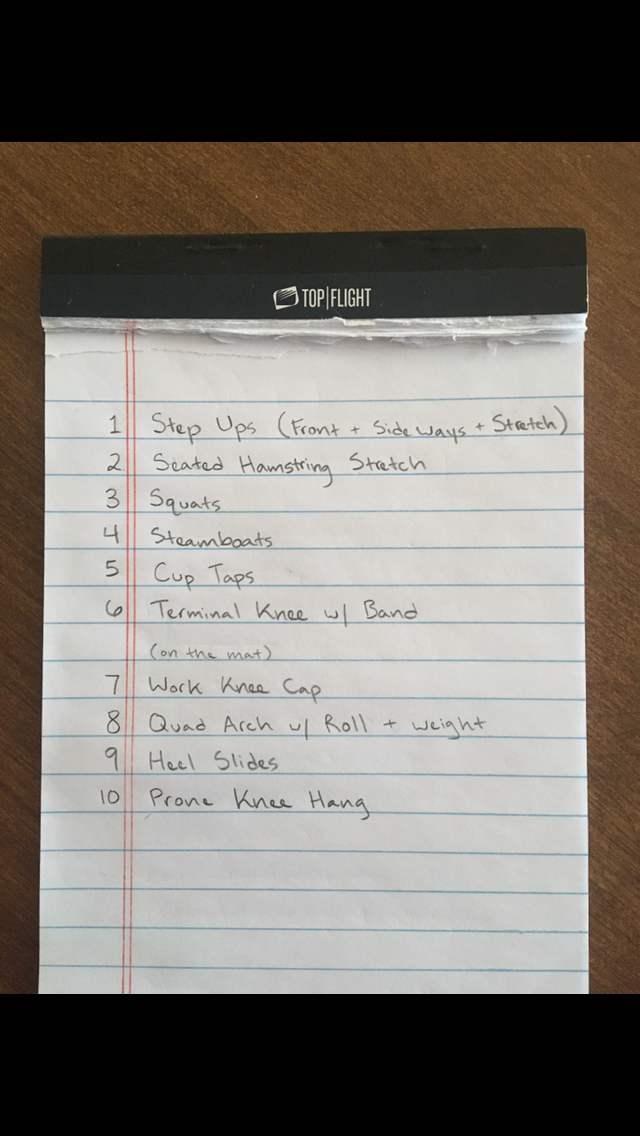 TOP|FLIGHT
1 Step Ups (Front + Sideways + Stretch)
2 Seated Hamstring Stretch
3 Squats
4 Steamboats
5 Cup Taps
6 Terminal Knee w/ Band
(on the mat)
7 Work Knee Cap
8 Quad Arch w/ Roll + weight
9 Heel Slides
10 Prone Knee Hang